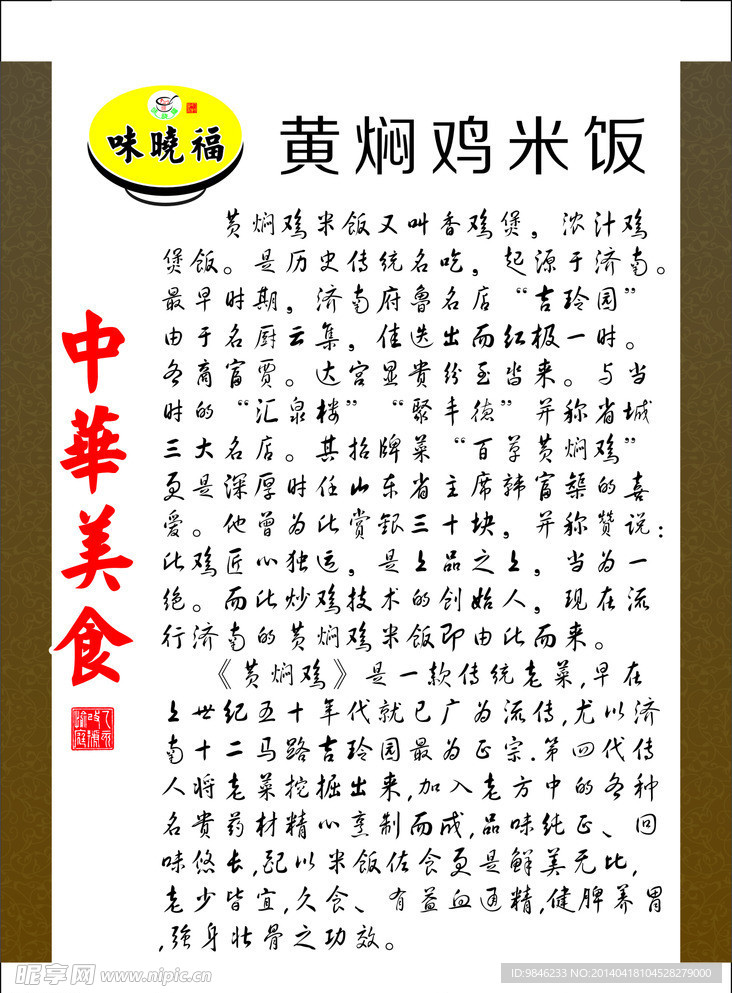 味曉福
黄焖鸡米饭
中華美食
黄焖鸡米饭又叫香鸡煲，浓汁鸡
煲饭。是历史传统名吃，起源于济南。
最早时期，济南府鲁名店“吉玲园”
由于名厨云集，佳迭出而红极一时。
各商富贾。达宫显贵纷至沓来。与当
时的“汇泉楼”“聚丰德”并称省城
三大名店。其招牌菜“百草黄焖鸡”
更是深厚时任山东省主席韩富榘的喜
爱。他曾为此赏银三十块，并称赞说：
此鸡匠心独运，是上品之上，当为一
绝。而此炒鸡技术的创始人，现在流
行济南的黄焖鸡米饭即由此而来。
《黄焖鸡》是一款传统老菜,早在
上世纪五十年代就已广为流传,尤以济
南十二马路吉玲园最为正宗.第四代传
人将老菜挖掘出来,加入老方中的各种
名贵药材精心烹制而成,品味纯正、回
味悠长,配以米饭佐食更是鲜美无比,
老少皆宜,久食、有益血通精,健脾养胃
,强身壮骨之功效。
昵享网 www.nipic.cn
ID:9846233 NO:20140418104528279000